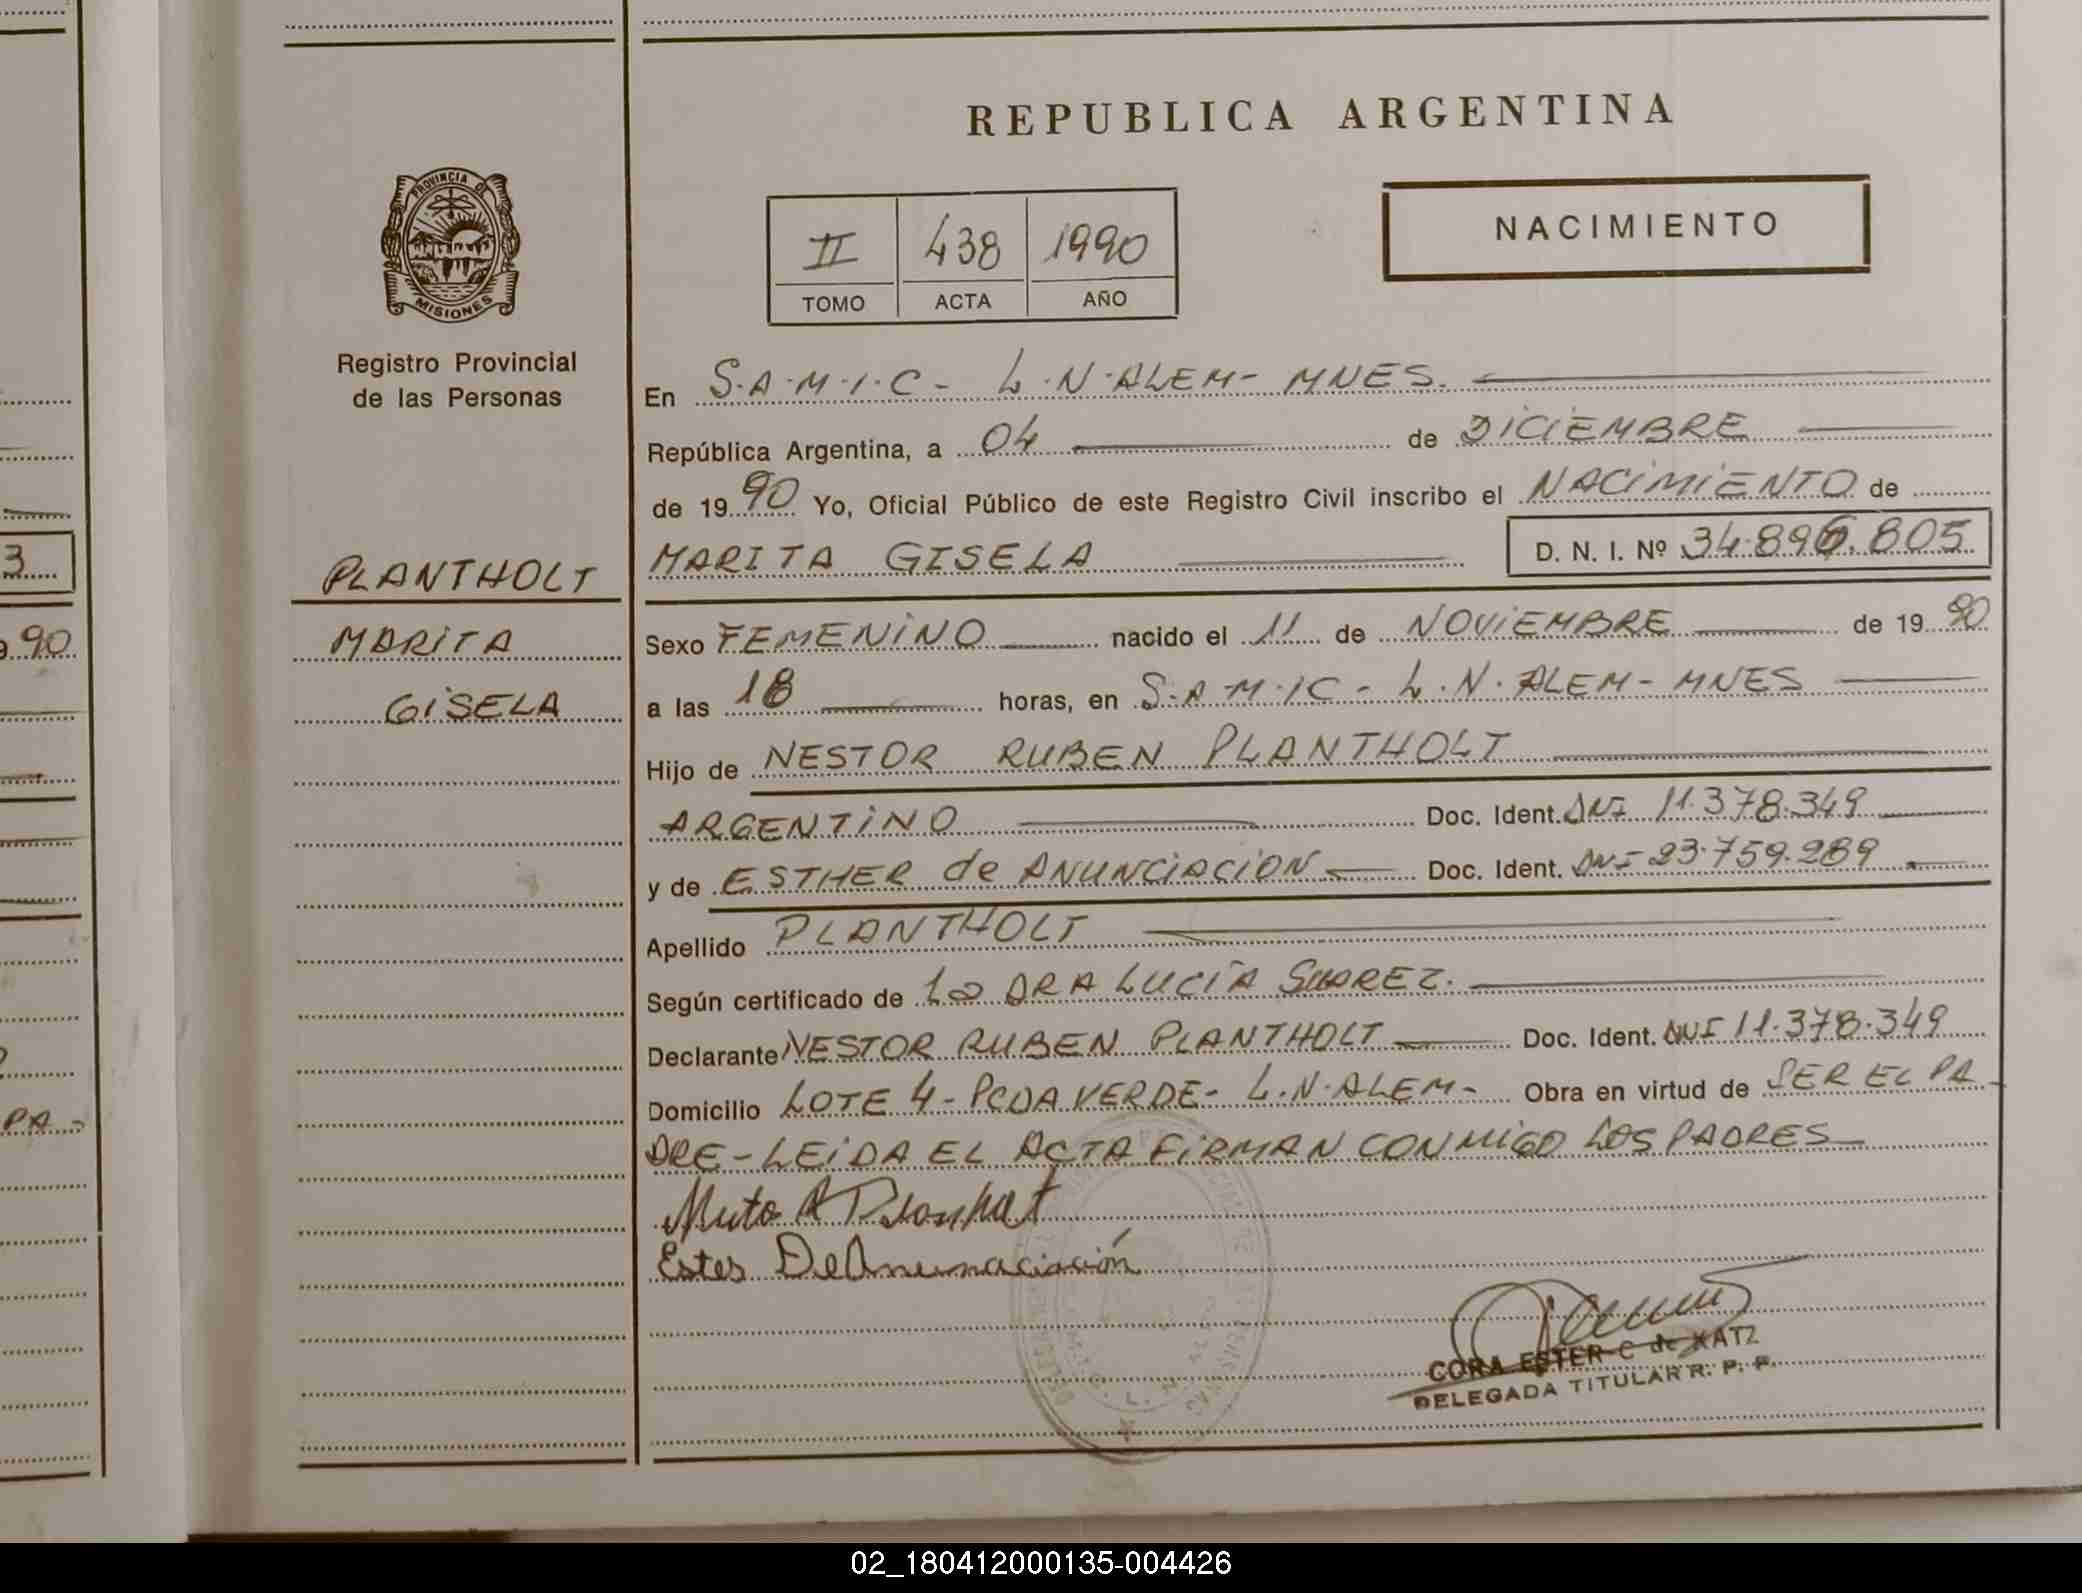 REPUBLICA ARGENTINA
PROVINCIA DE
MISIONES
Registro Provincial
de las Personas
II 438 1990
TOMO ACTA AÑO
NACIMIENTO
En S.A.M.I.C- L.N.ALEM- MNES.
República Argentina, a 04 de DICIEMBRE
de 1990 Yo, Oficial Público de este Registro Civil inscribo el NACIMIENTO de
MARITA GISELA D. N. I. Nº 34.896.805
PLANTHOLT
MARITA
GISELA
Sexo FEMENINO nacido el 11 de NOVIEMBRE de 1990
a las 18 horas, en S.A.M.IC- L.N.ALEM- MNES
Hijo de NESTOR RUBEN PLANTHOLT
ARGENTINO Doc. Ident. DNI 11.378.349
y de ESTHER de ANUNCIACION Doc. Ident. DNI 23.759.289
Apellido PLANTHOLT
Según certificado de La DRA LUCIA SUAREZ.
Declarante NESTOR RUBEN PLANTHOLT Doc. Ident. DNI 11.378.349
Domicilio LOTE 4-PCDA VERDE- L.N.ALEM- Obra en virtud de SER EL PA-
DRE-LEIDA EL ACTA FIRMAN CONMIGO LOS PADRES
Ester De Anunaciación
CORA ESTER C de KATZ
DELEGADA TITULAR R. P. P.
3
90
PA-
02_180412000135-004426